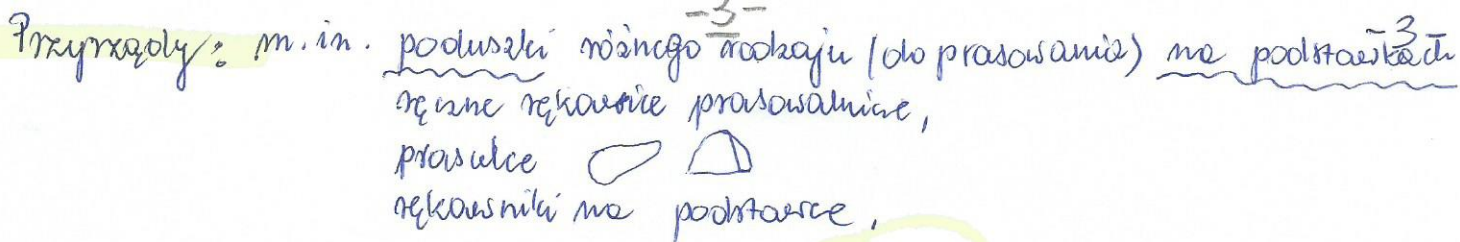 -3-
Przyrządy: m.in. poduszki różnego rodzaju (do prasowania) na podstawkach -3-
ręczne rękawice prasowalnicze,
prasulce
rękawniki na podstawce,